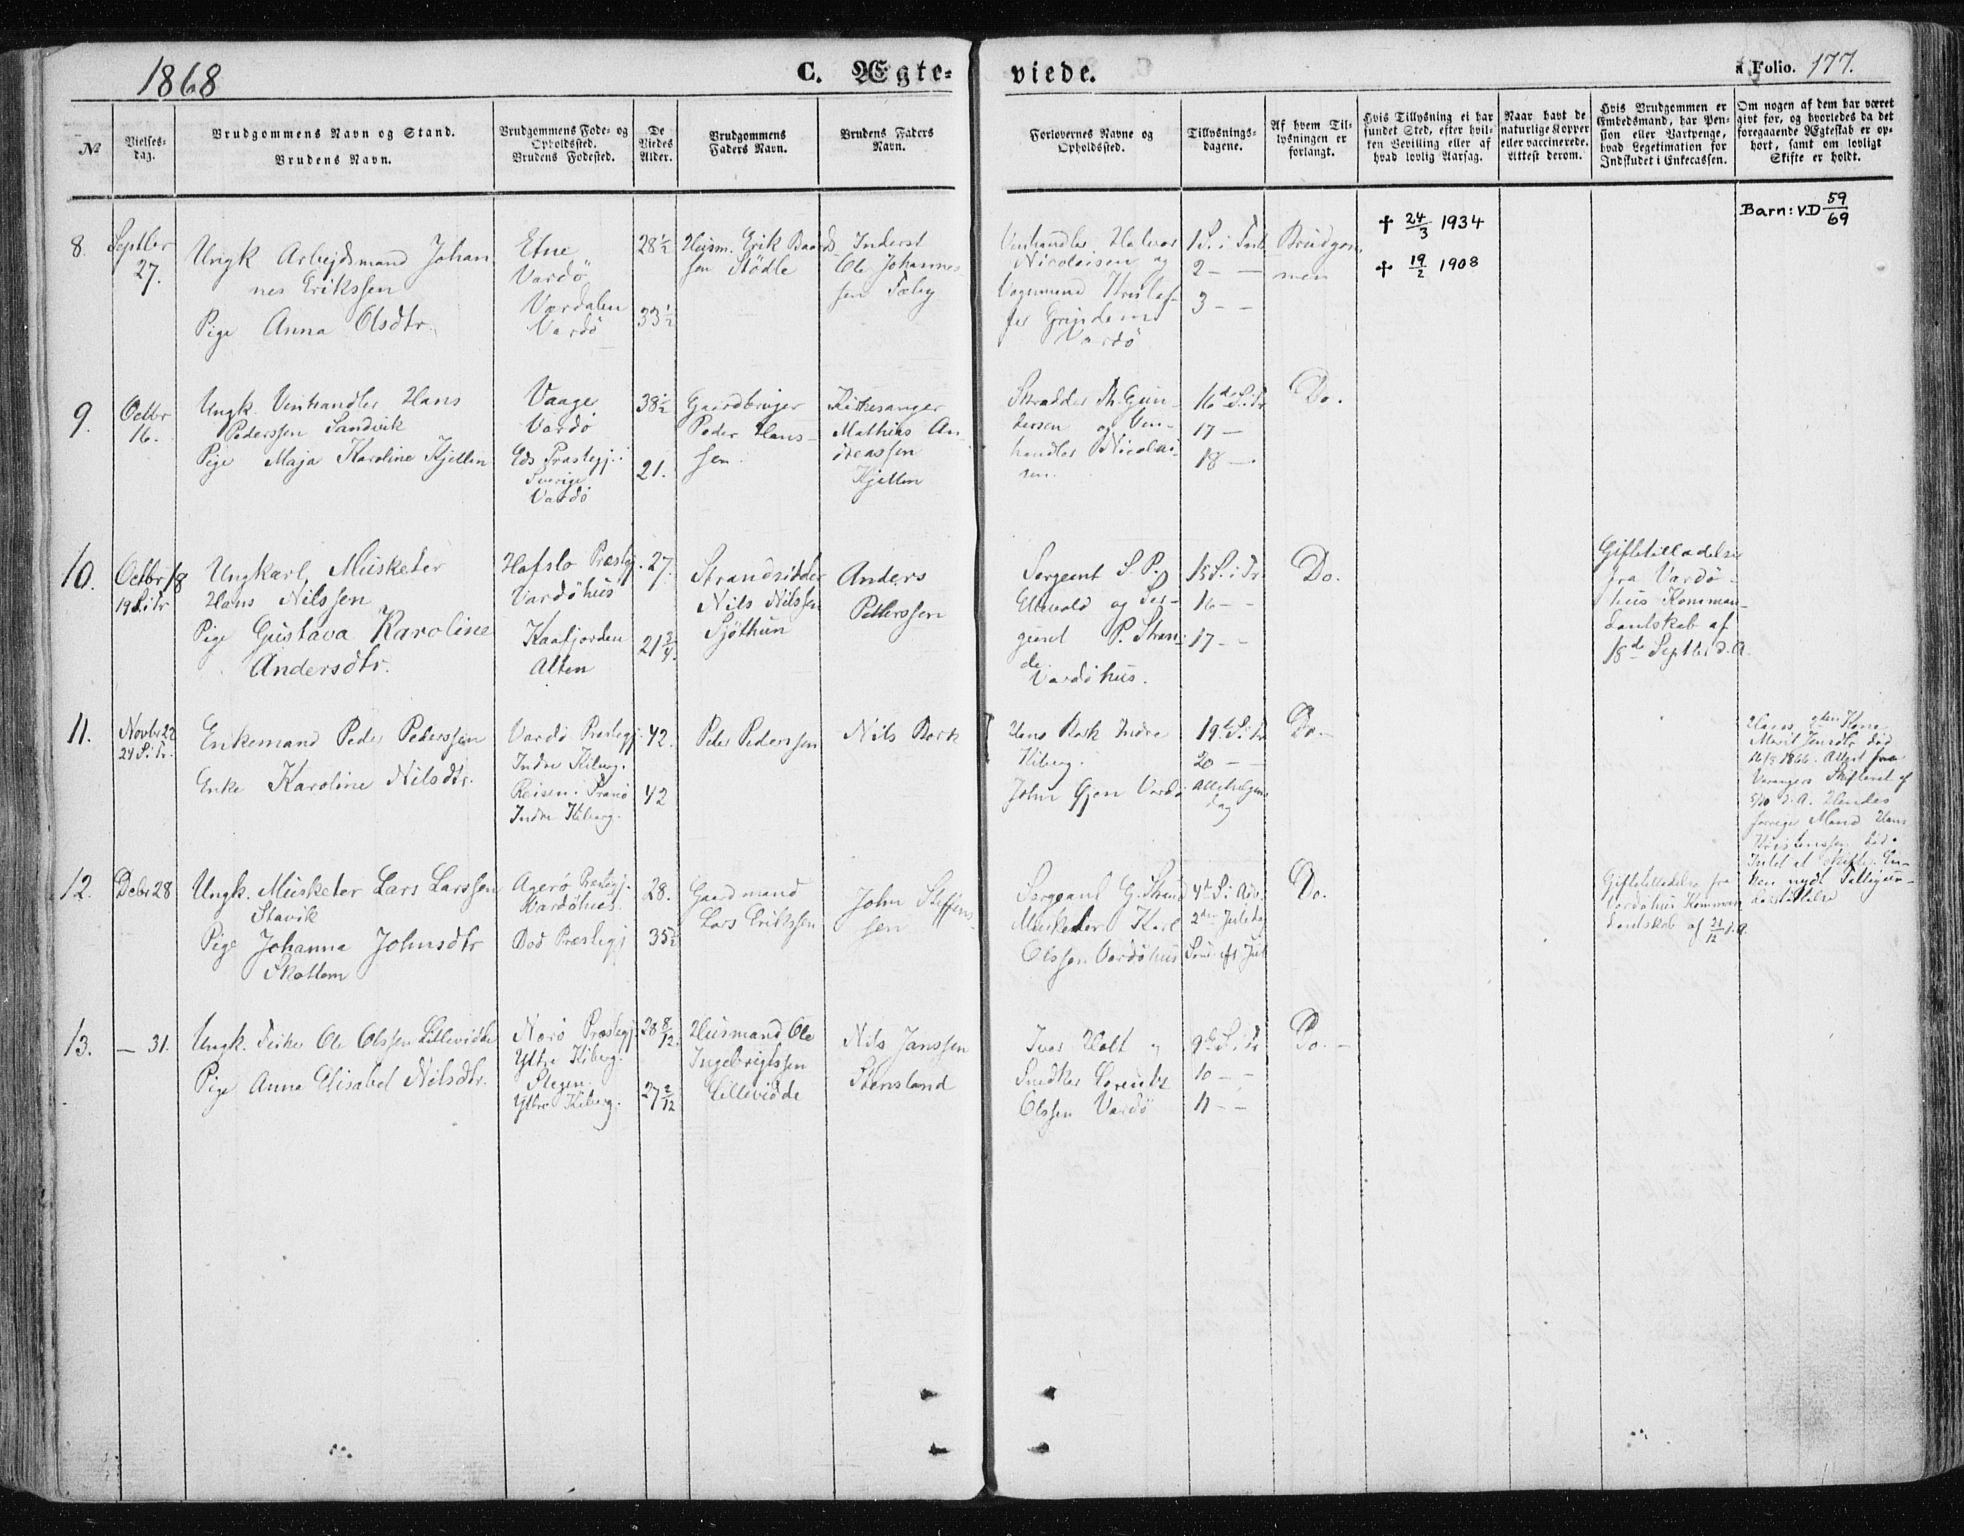 1868
C. Ægte-
viede.
a Folio. 177.
№
Vielses-
dag.
Brudgommens Navn og Stand.
Brudens Navn.
Brudgommens Føde- og
Opholdssted.
Brudens Fødested.
De
Viedes
Alder.
Brudgommens
Faders Navn.
Brudens Faders
Navn.
Forlovernes Navne og
Opholdssted.
Tillysnings-
dagene.
Af hvem Til-
lysningen er
forlangt.
Hvis Tillysning ei har
fundet Sted, efter hvil-
ken Bevilling eller af
hvad lovlig Aarsag.
Naar havt de
naturlige Kopper
eller vaccinerede.
Attest derom.
Hvis Brudgommen er
Embedsmand, har Pen-
sion eller Vartpenge,
hvad Legetimation for
Indskudet i Enkecassen.
Om nogen af dem har været
givt før, og hvorledes da det
foregaaende Ægteskab er op-
hørt, samt om lovligt
Skifte er holdt.
8.
Septbr
27.
Ungk Arbejdsmand Johan
nes Erikssen
Pige Anna Olsdtr.
Etne
Vardö
Værdalen
Vardö
28 1/2
33 1/2
Husm. Erik Baards
sen Stödle
Inderst
Ole Johannes
sen Fæby
Vinhandler Halvor
Nicolaisen og
Vognmand Kristof-
fer Grindem
Vardö
1 S. i Fast
2 — —
3 — —
Brudgom
men
✝ 24/3 1934
✝ 19/2 1908
Barn: VD 59/69
9.
Octbr
16.
Ungk. Vinhandler Hans
Pederssen Sandvik
Pige Maja Karoline Kjellen
Vaage
Vardö
Eds Præstegj.
Sverige
Vardö
38 1/2
21.
Gaardbruger
Peder Hans-
sen.
Kirkesanger
Mathias An-
dreassen
Kjellen
Skrædder Th. Gun-
dersen og Vin-
handler Nicolai-
sen.
16de S. i Tr
17 —
18 —
Do.
10.
Octbr 18
19 S. i Tr
Ungkarl Musketer
Hans Nilssen
Pige Gustava Karoline
Andersdtr.
Hafslo Præstgj.
Vardöhus
Kaafjorden
Alten
27.
21 3/4.
Strandsidder
Nils Nilssen
Sjöthun
Anders
Petterssen
Sergeant S. P.
Ellevold og Ser-
geant P. Stran-
de.
Vardöhus.
15 S. i Tr.
16 — —
17 — —
Do.
Giftetilladelse
fra Vardö-
hus Komman-
dantskab af
18de Septbr d. A.
11.
Novbr 22
24 S. i Tr.
Enkemand Peder Pederssen
Enke Karoline Nilsdtr.
Vardö Præstegj.
Indre Kiberg.
Reisen. Tranö
Indre Kiberg.
42.
42
Peder Pederssen
Nils Bork
Hans Bork Indre
Kiberg.
John Gjön Vardö
19de S. i Tr
20 — —
Allehelgens
dag
Do.
Hans Kone
Marit Jensdtr död
1866. Attest fra
Varangers Skifteret af
5/10 d. A. Hendes
forrige Mand Hans
Kristenssen död.
Intet at skifte. En-
ken nydt Fattigun-
derstöttelse
12.
Decbr 28
Ungk. Musketer Lars Larssen
Stavik
Pige Johanna Johnsdtr
Skotlem
Agerö Præstegj.
Vardöhus.
Bod Præstegj
28.
35 1/2
Gaardmand
Lars Erikssen
John Steffens
sen
Sergeant G. Strand
Musketer Karl
Olssen Vardöhus
4de S. i Adv.
2den Juledag
Sønd. eft. Jul
Do.
Giftetilladelse fra
Vardöhus Komman
dantskab af 21/12 d. A.
13.
— 31.
Ungk. Fisker Ole Olssen Lillevidde
Pige Anna Elisabet Nilsdtr.
Narö Præstegj.
Ytre Kiberg.
Stegen.
Ytre Kiberg.
28 8/12.
27 2/12
Husmand Ole
Ingebrigtssen
Lillevidde
Nils Janssen
Stensland
Ivar Holt og
Snedker Lorentz
Olssen Vardö
9de S. i Tr
10 — —
11 — —
Do. —